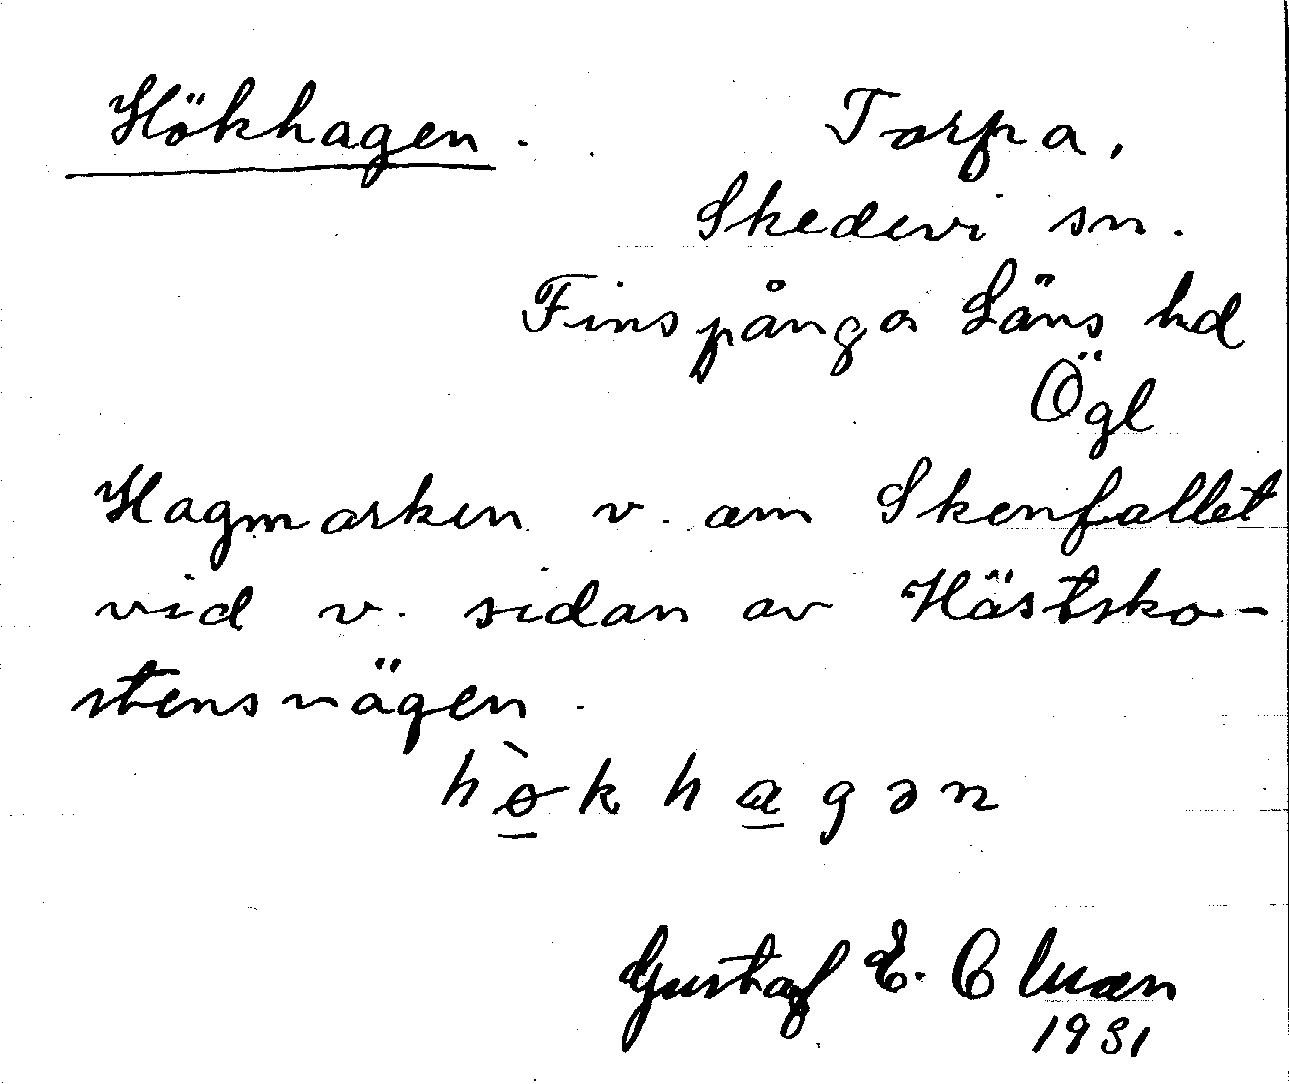 Hökhagen. Torpa,
Skedevi sn.
Finspånga Läns hd
Ögl
Hagmarken v. om Skenfallet
vid v. sidan av Hästsko-
stensvägen.
hø̀khagən
Gustaf E.
1931